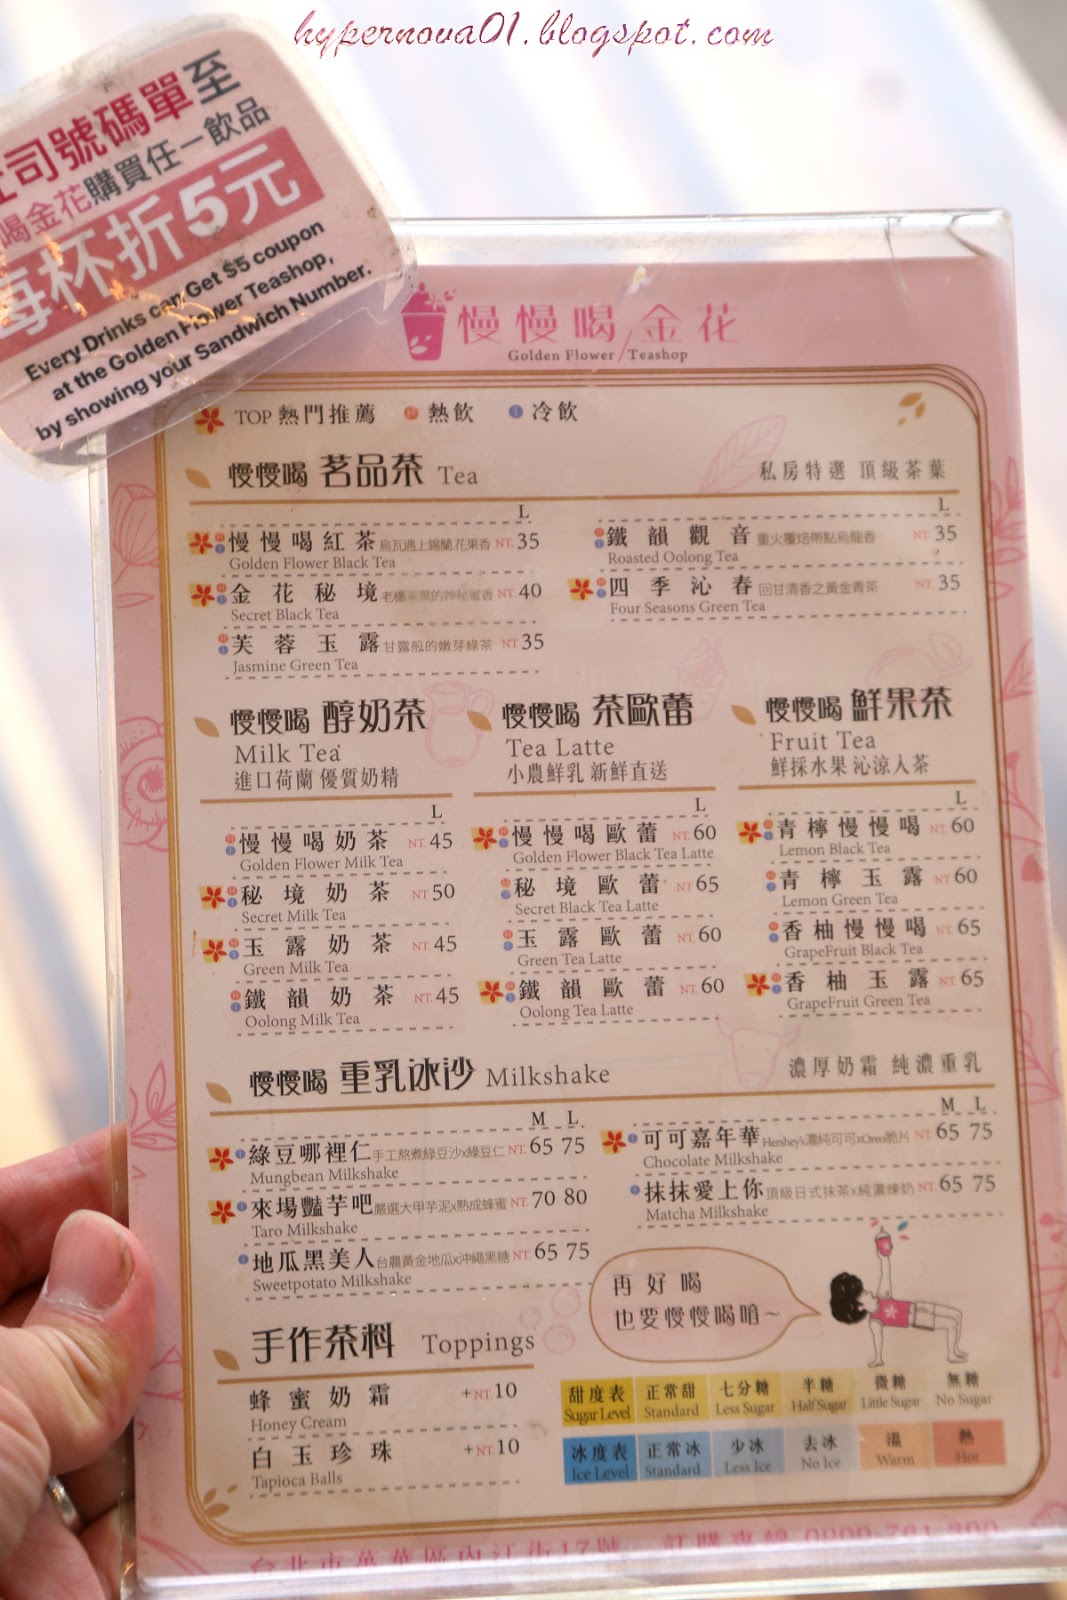 hypernova01.blogspot.com
司號碼單至
喝金花購買任一飲品
每杯折5元
Every Drinks can Get $5 coupon
at the Golden Flower Teashop,
by showing your Sandwich Number.
慢慢喝/金花
Golden Flower / Teashop
TOP 熱門推薦 H 熱飲 I 冷飲
慢慢喝 茗品茶 Tea
私房特選 頂級茶葉
L
慢慢喝紅茶 烏瓦遇上錫蘭.花果香 NT. 35
Golden Flower Black Tea
金花秘境 老欉茶葉的神秘蜜香 NT. 40
Secret Black Tea
芙蓉玉露 甘露般的嫩芽綠茶 NT 35
Jasmine Green Tea
L
鐵韻觀音 重火覆焙帶點烏龍香 NT. 35
Roasted Oolong Tea
四季沁春 回甘清香之黃金青茶 NT. 35
Four Seasons Green Tea
慢慢喝 醇奶茶
Milk Tea
進口荷蘭 優質奶精
L
慢慢喝奶茶 NT. 45
Golden Flower Milk Tea
秘境奶茶 NT 50
Secret Milk Tea
玉露奶茶 NT. 45
Green Milk Tea
鐵韻奶茶 NT. 45
Oolong Milk Tea
慢慢喝 茶歐蕾
Tea Latte
小農鮮乳 新鮮直送
L
慢慢喝歐蕾 NT. 60
Golden Flower Black Tea Latte
秘境歐蕾 NT. 65
Secret Black Tea Latte
玉露歐蕾 NT. 60
Green Tea Latte
鐵韻歐蕾 NT. 60
Oolong Tea Latte
慢慢喝 鮮果茶
Fruit Tea
鮮採水果 沁涼人茶
L
青檸慢慢喝 NT. 60
Lemon Black Tea
青檸玉露 NT 60
Lemon Green Tea
香柚慢慢喝 NT. 65
GrapeFruit Black Tea
香柚玉露 NT 65
GrapeFruit Green Tea
慢慢喝 重乳冰沙 Milkshake
濃厚奶霜 純濃重乳
M L
綠豆哪裡仁 手工熬煮綠豆沙x綠豆仁 NT. 65 75
Mungbean Milkshake
來場豔芋吧 嚴選大甲芋泥x熟成蜂蜜 NT. 70 80
Taro Milkshake
地瓜黑美人 台農黃金地瓜x沖繩黑糖 NT. 65 75
Sweetpotato Milkshake
M L
可可嘉年華 Hershey's濃純可可xOreo脆片 NT. 65 75
Chocolate Milkshake
抹抹愛上你 頂級日式抹茶x純濃煉奶 NT. 65 75
Matcha Milkshake
再好喝
也要慢慢喝唷~
手作茶料 Toppings
蜂蜜奶霜 +NT.10
Honey Cream
白玉珍珠 +NT.10
Tapioca Balls
甜度表 正常甜 七分糖 半糖 微糖 無糖
Sugar Level Standard Less Sugar Half Sugar Little Sugar No Sugar
冰度表 正常冰 少冰 去冰 溫 熱
Ice Level Standard Less Ice No Ice Warm Hot
台北市萬華區內江街17號 訂購專線 0800-761-300